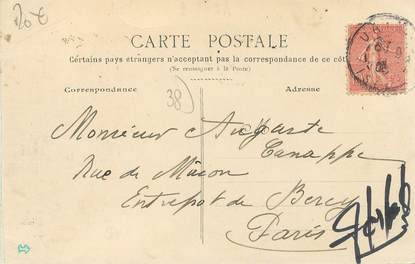 20 €
CARTE POSTALE
Certains pays étrangers n'acceptant pas la correspondance de ce côté
(Se renseigner à la Poste)
Correspondance
Adresse
38
Monsieur Auguste
Canappe
Rue de Mâcon
Entrepot de Bercy
Paris